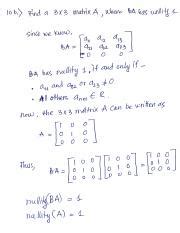 10b.) Find a 3x3 matrix A, where BA has nullity 1.
since we know,
BA = [ a₁₁ a₁₂ a₁₃
a₂₁ a₂₂ a₂₃
0 0 0 ]
BA has nullity 1, if and only if -
• a₁₁ and a₂₂ or a₂₃ ≠ 0
• All others aₙₘ ∈ R.
now, the 3x3 matrix A can be written as
[ 1 0 0
0 1 0
0 0 0 ]
Thus,
BA = [ 1 0 0
0 1 0
0 0 0 ] [ 1 0 0
0 1 0
0 0 0 ] = [ 1 0 0
0 1 0
0 0 0 ]
nullity(BA) = 1
nullity(A) = 1